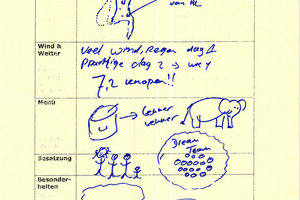 van HL
Wind &
Wetter
veel wind, regen dag 1
prachtige dag 2 → wey
7,2 knopen!!
Menü
lekker
lekker
Dream
Team
Besatzung
Besonder-
heiten